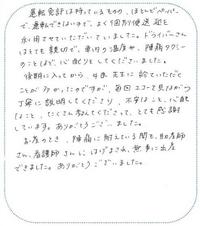 運転免許は持っているものの、ほとんどペーパー
で運転できないので、よく個別便送迎を
利用させていただいていました。ドライバーさん
はとても親切で、車内の温度や、陣痛タクシー
のことなど、心配りをしてくださいました。
後期に入ってから、先生に診ていただく
ことが多かったのですが、毎回エコーで見ながら
丁寧に説明してくださり、不安なこと、心配
なこと、たくさん教えてくださって、とても感謝
しています。ありがとうございました。
お産のとき、陣痛に耐えている間も、助産師
さん、看護師さんにはげまされ、無事に出産
できました。ありがとうございました。